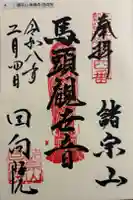 奉拝
諸宗山
馬頭観世音
令和八年
二月四日
回向院